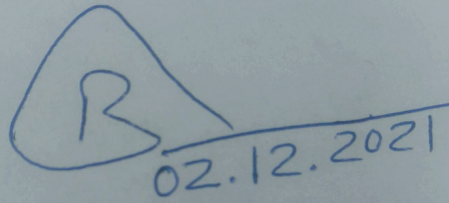 R
02.12.2021